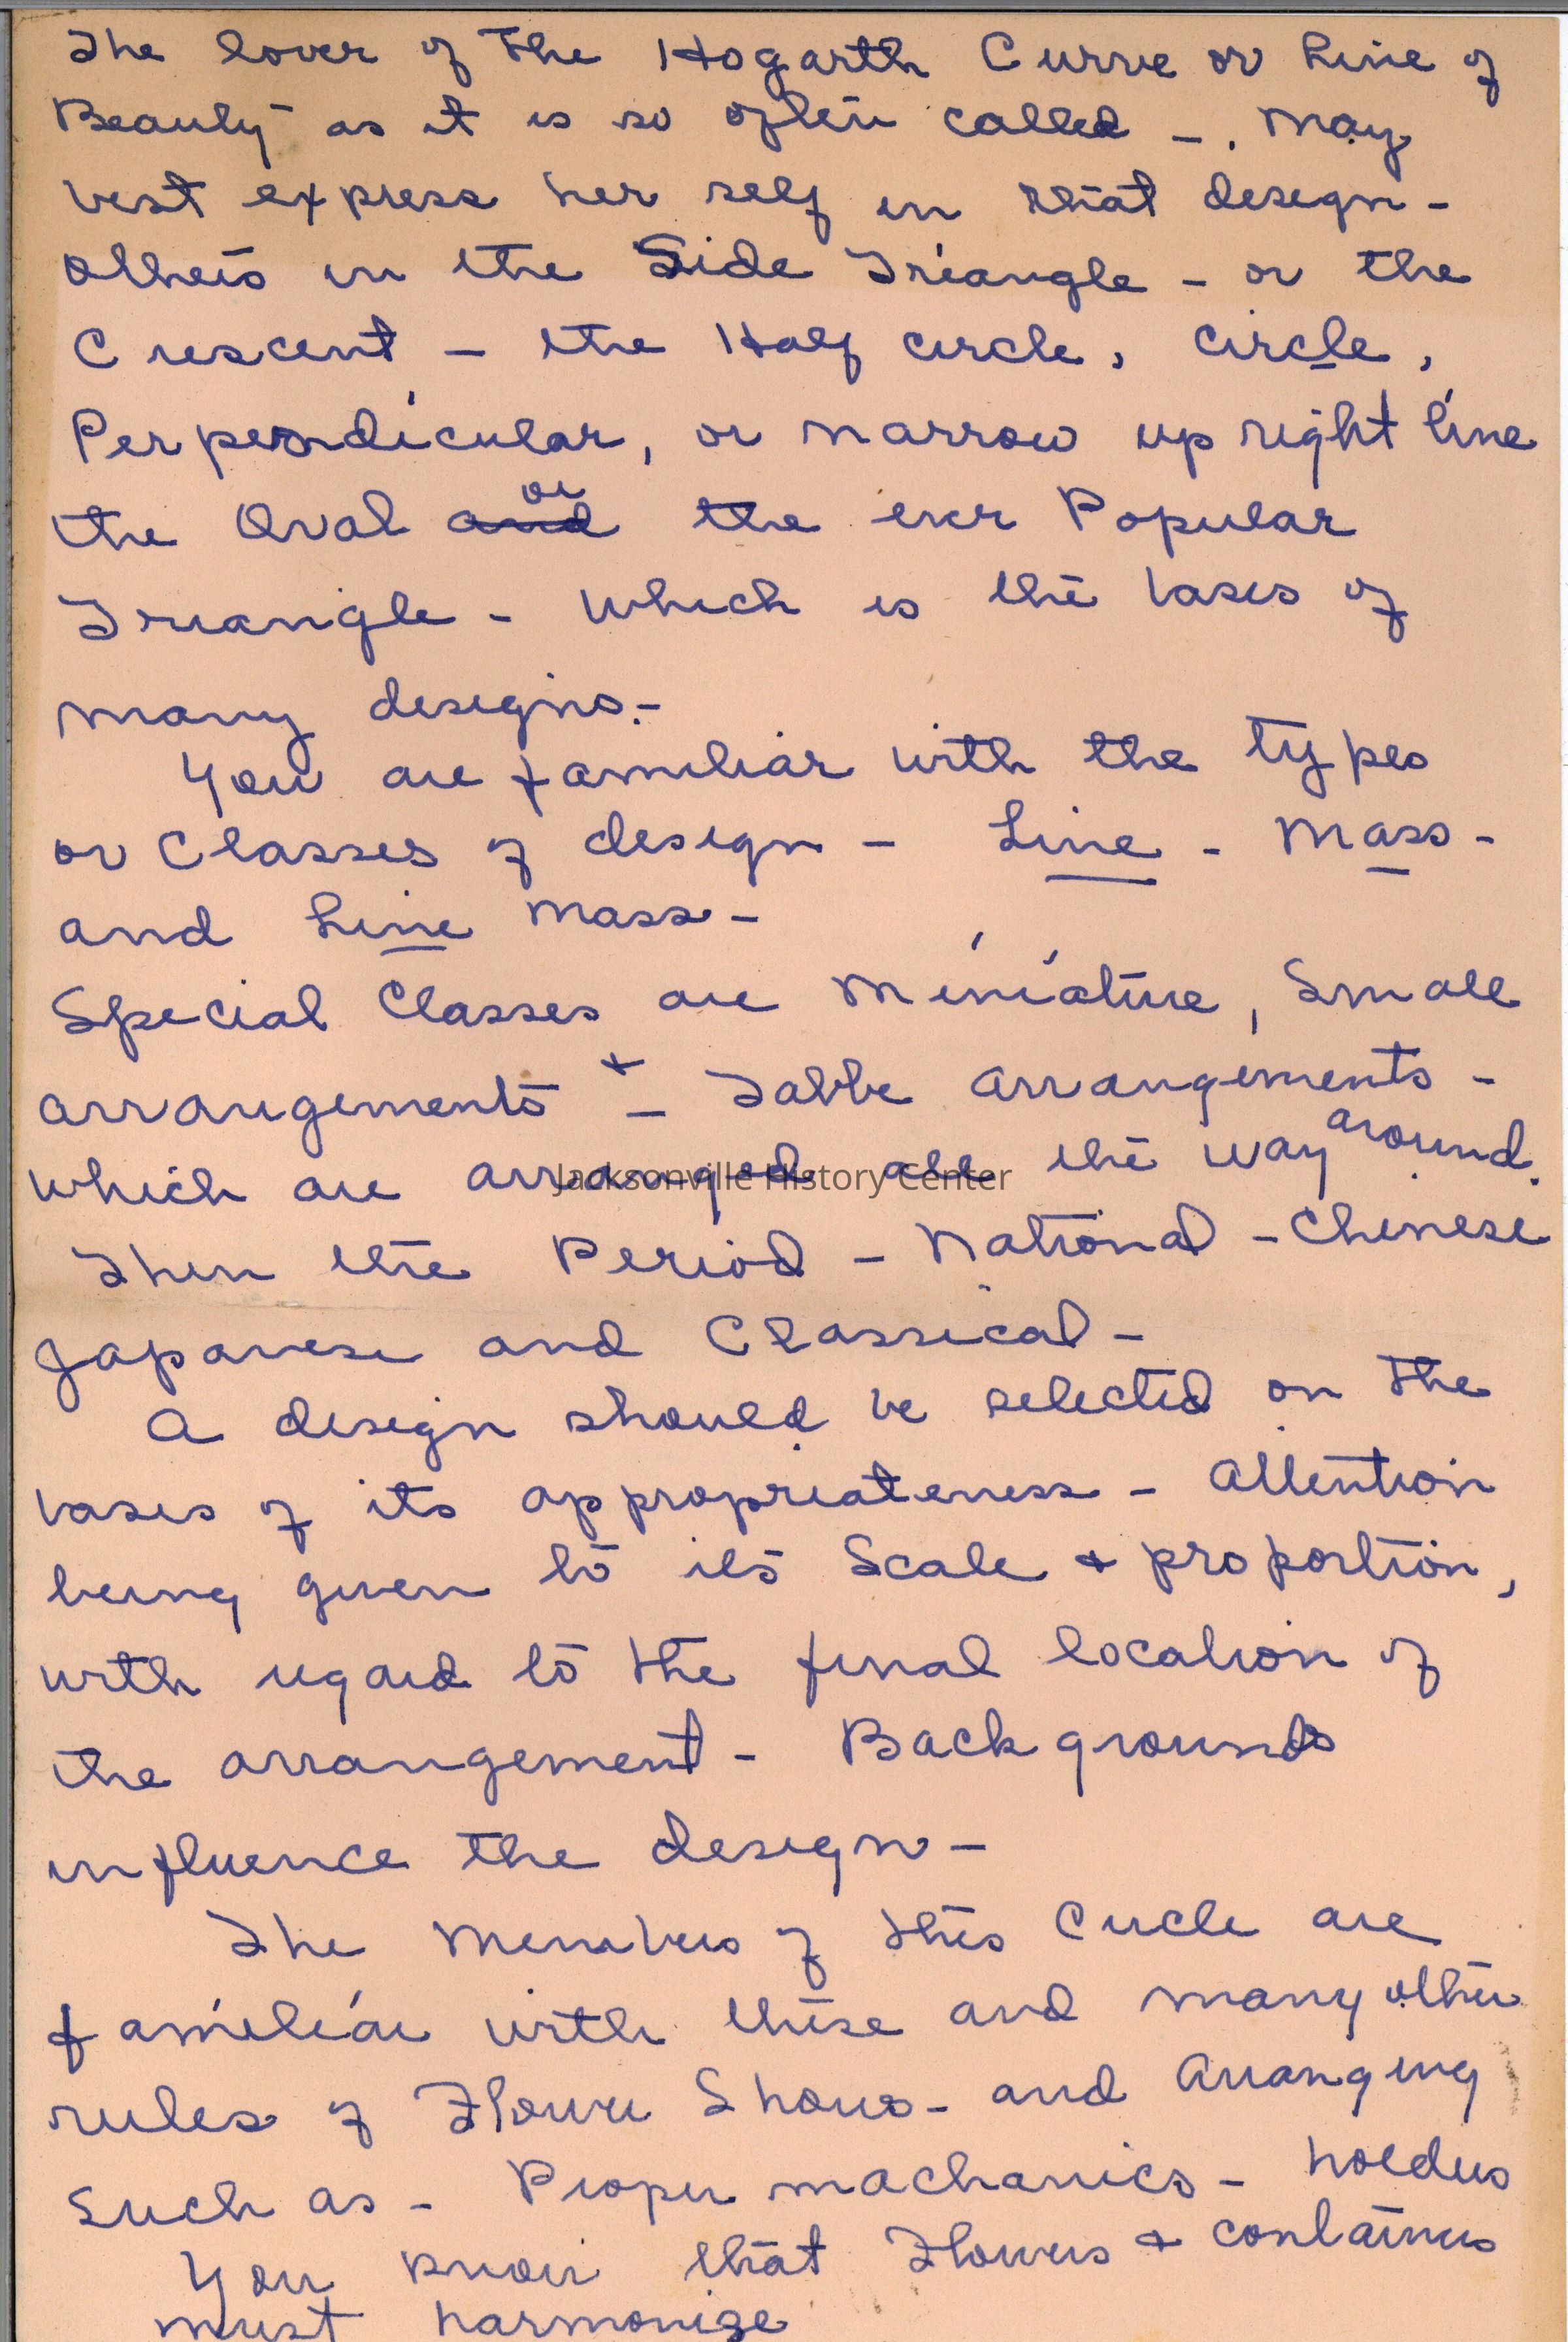 The lover of The Hogarth Curve or Line of
Beauty as it is so often called -. May
best express her self in that design -
others in the Side Triangle - or the
Crescent - the Half circle, circle,
Perpendicular, or narrow up right line
the Oval and or the ever Popular
Triangle - which is the bases of
many designs.-
You are familiar with the types
or Classes of design - Line - Mass -
and Line Mass -
Special Classes are Miniature, Small
arrangements + - Table arrangements -
which are arranged all the way around.
Jacksonville History Center
Then the Period - National - Chinese
Japanese and Classical -
A design should be selected on The
bases of its appropriateness - Attention
being given to its Scale + proportion,
with regard to the final location of
the arrangement - Back grounds
influence the design -
The Members of this Circle are
familiar with these and many other
rules of Flower Shows - and Arranging
Such as - Proper machanics - holders
You know that Flowers + containers
must harmonize